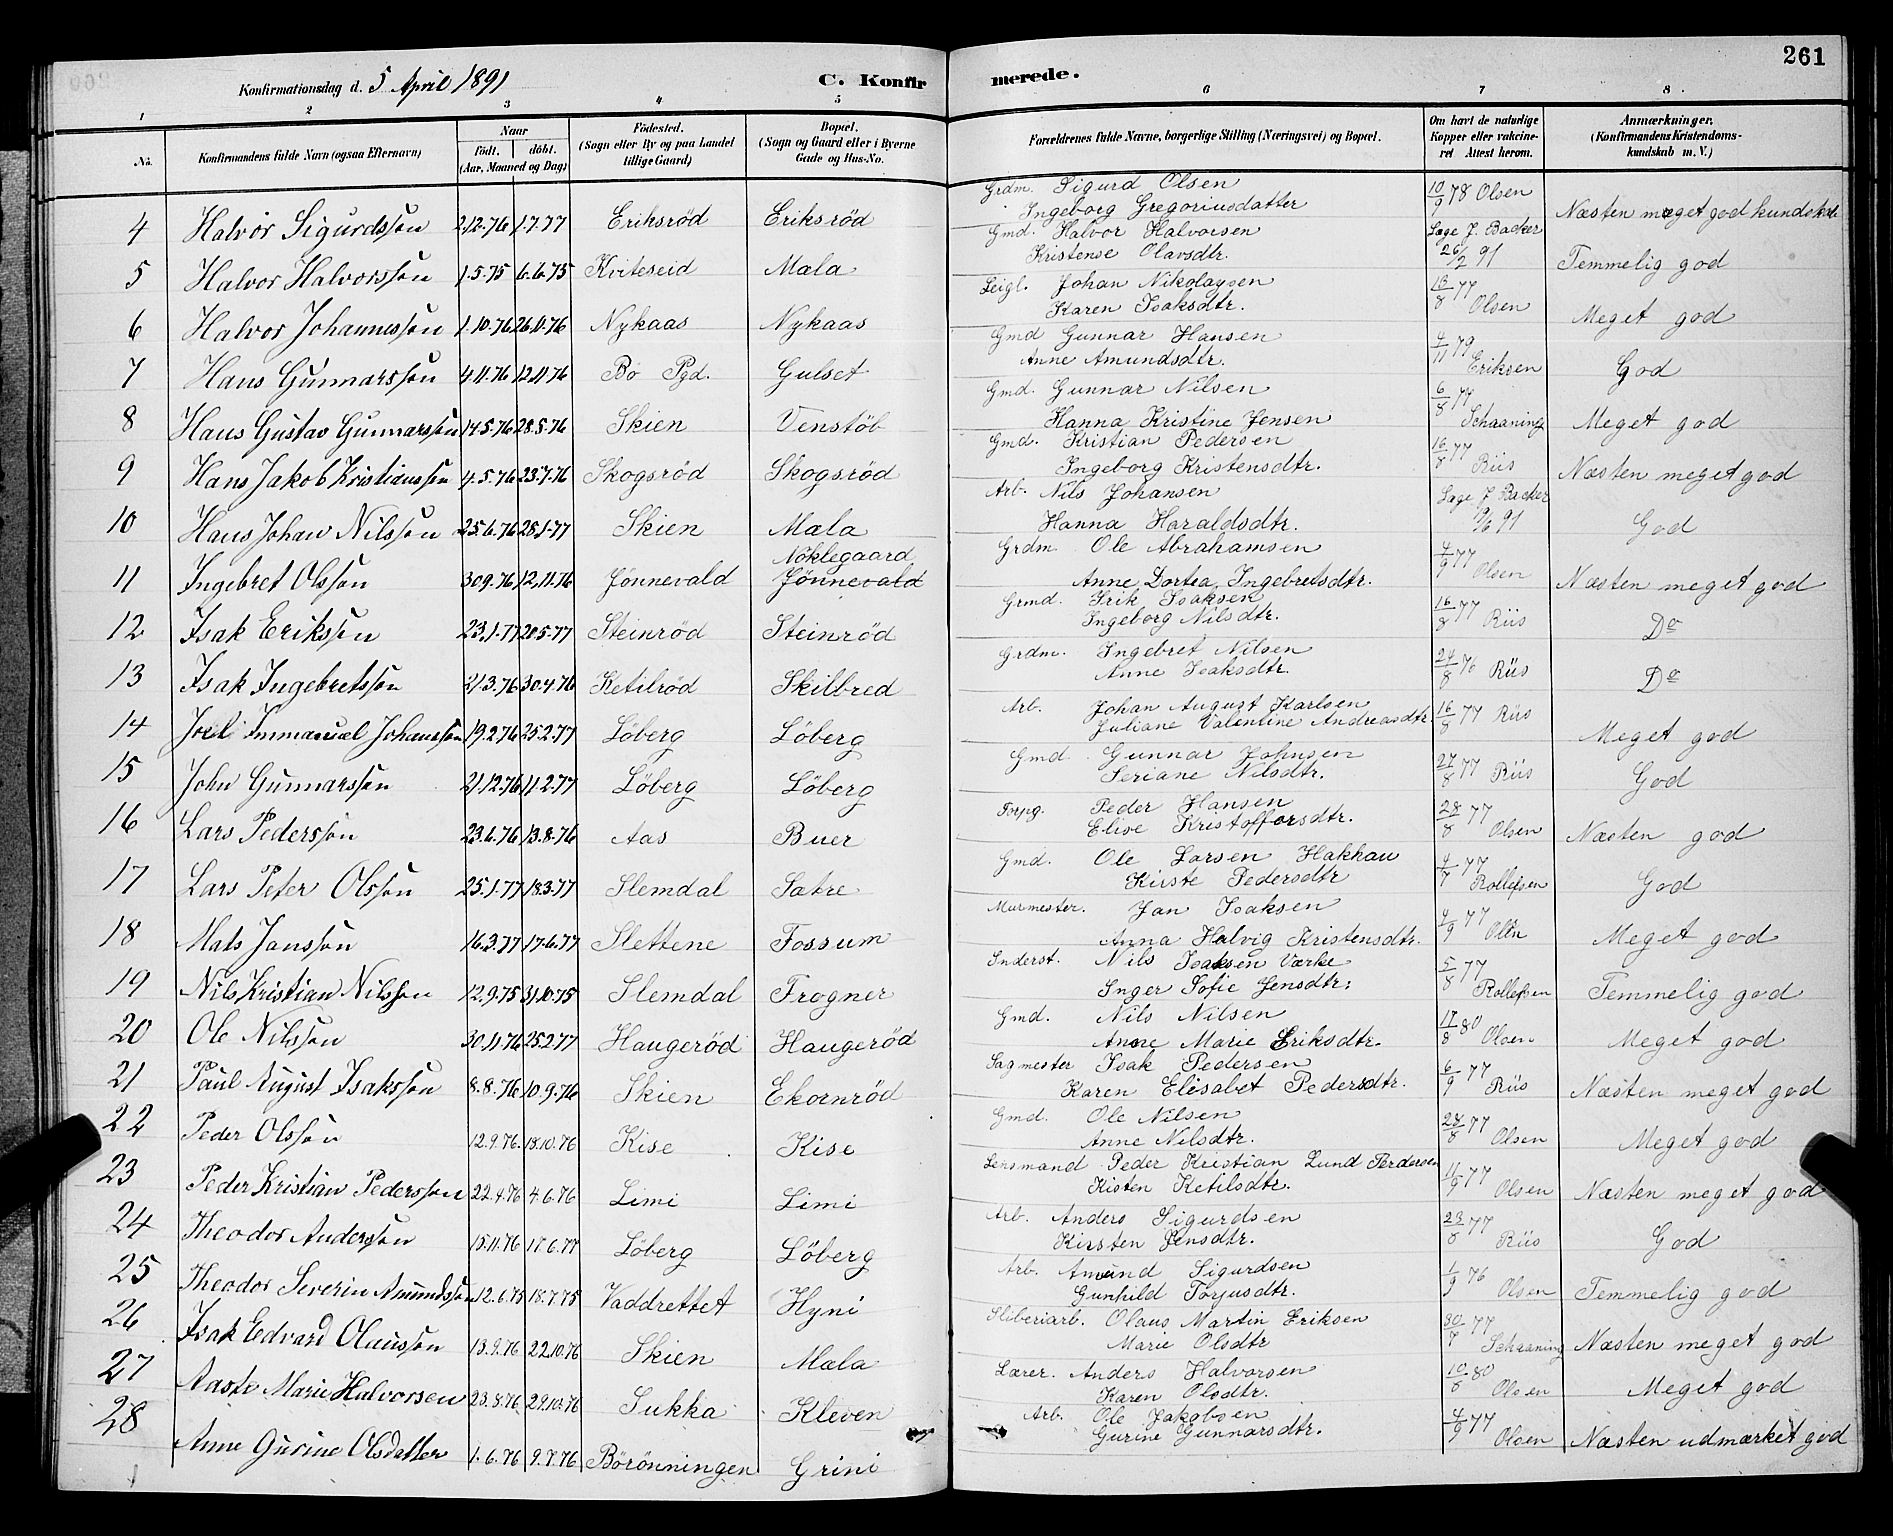 261
Konfirmationsdag d. 5 April 1891
C. Konfirmerede.
1 2 3 4 5 6 7 8
No.
Konfirmandens fulde Navn (ogsaa Efternavn)
Naar
født. døbt.
(Aar, Maaned og Dag)
Fødested.
(Sogn eller By og paa Landet
tillige Gaard)
Bopæl.
(Sogn og Gaard eller i Byerne
Gade og Hus-No.
Forældrenes fulde Navne, borgerlige Stilling (Næringsvei) og Bopæl.
Om havt de naturlige
Kopper eller vaccine-
ret Attest herom.
Anmærkninger,
(Konfirmandens Kristendoms-
kundskab m. V.)
4 Halvor Sigurdssøn 2.12.76 1.7.77 Eriksröd Eriksröd Grdm. Sigurd Olsen
Ingeborg Gregoriusdatter 10/9 78 Olsen Næsten meget god kundskab
5 Halvor Halvorssøn 1.5.75 6.6.75 Kviteseid Mæla Gmd. Halvor Halvorsen
Kristense Olavsdtr. Læge J. Backer 26/2 91 Temmelig god
6 Halvor Johannessøn 1.10.76 26.11.76 Nykaas Nykaas Leigl. Johan Nikolaysen
Karen Isaksdtr. 16/8 77 Olsen Meget god
7 Hans Gunnarssøn 4.11.76 12.11.76 Bö Pgd. Gulset Gmd Gunnar Hansen
Anne Amundsdtr. 4/11 79 Eriksen God
8 Hans Gustav Gunnarssøn 14.5.76 28.5.76 Skien Venstöb Gmd. Gunnar Nilsen
Hanna Kristine Jensen 6/8 77 Schaaning Meget god
9 Hans Jakob Kristianssøn 4.5.76 23.7.76 Skogsröd Skogsröd Gmd. Kristian Pedersen
Ingeborg Kristensdtr. 16/8 77 Riis Næsten meget god
10 Hans Johan Nilssøn 25.6.76 28.1.77 Skien Mæla Arb. Nils Johansen
Hanna Haraldsdtr. Læge J Backer 91 God
11 Ingebret Olssøn 30.9.76 12.11.76 Jönnevald Nöklegaard
Jönnevald Grdm Ole Abrahamsen
Anne Dortea Ingebretsdtr. 4/9 77 Olsen Næsten meget god
12 Isak Erikssøn 23.1.77 20.5.77 Steinröd Steinröd Grmd. Erik Isaksen
Ingeborg Nilsdtr. 16/8 77 Riis Do
13 Isak Ingebretssøn 21.3.76 30.4.76 Ketilröd Skilbred Grdm. Ingebret Nilsen
Anne Isaksdtr. 24/8 76 Riis Do
14 Joel Immanuel Johanssøn 19.2.76 25.2.77 Löberg Löberg Arb. Johan August Karlsen
Juliane Valentine Andreasdtr. 16/8 77 Riis Meget god
15 John Gunnarssøn 21.12.76 11.2.77 Löberg Löberg Gmd. Gunnar Johnsen
Seriane Nilsdtr. 27/8 77 Riis God
16 Lars Pederssøn 23.6.76 13.8.76 Aas Buer Forpg. Peder Hansen
Elise Kristoffersdtr. 28/8 77 Olsen Næsten god
17 Lars Peter Olssøn 25.1.77 18.3.77 Slemdal Sætre Gmd. Ole Larsen Hakkau
Kirste Pedersdtr 4/7 77 Rollefsen God
18 Mats Janssøn 16.3.77 17.6.77 Slettene Fossum Murmester. Jan Isaksen
Anna Halvig Kristensdtr. 4/9 77 Olsen Meget god
19 Nils Kristian Nilssøn 12.9.75 31.10.75 Slemdal Frogner Inderst. Nils Isaksen Værke
Inger Sofie Jensdtr. 5/8 77 Rollefsen Temmelig god
20 Ole Nilssøn 30.11.76 25.2.77 Haugeröd Haugeröd Gmd. Nils Nilsen
Anne Marie Eriksdtr. 17/8 80 Olsen Meget god
21 Paul August Isakssøn 8.8.76 10.9.76 Skien Ekornröd Sagmester Isak Pedersen
Karen Elisabet Pedersdtr. 6/9 77 Riis Næsten meget god
22 Peder Olssøn 12.9.76. 18.10.76 Kise Kise Gmd. Ole Nilsen
Anne Nilsdtr. 28/8 77 Olsen Meget god
23 Peder Kristian Pederssøn 22.4.76 4.6.76 Limi Limi Lensmand Peder Kristian Lund Pedersen
Kisten Ketilsdtr. 11/9 77 Olsen Næsten meget god
24 Theodor Anderssøn 15.11.76 17.6.77 Löberg Löberg Arb. Anders Sigurdsen
Kirsten Jensdtr. 23/8 77 Riis God
25 Theodor Severin Amundssøn 12.6.75 18.7.75 Vaddrettet Hyni Arb. Amund Sigurdsen
Gunhild Torjusdtr. 1/9 76 Olsen Temmelig god
26 Isak Edvard Olaussøn 13.9.76 22.10.76 Skien Mæla Sliberiarb. Olaus Martin Eriksen
Marie Olsdtr 30/7 77 Schaaning Næsten meget god
27 Aaste Marie Halvorsen 23.8.76 29.10.76 Sukka Kleven Lærer. Anders Halvorsen
Karen Olsdtr. 10/8 80 Olsen Meget god
28 Anne Gurine Olsdatter 1.6.76 9.7.76 Börönningen Grini Arb. Ole Jakobsen
Gurine Gunnarsdtr. 4/9 77 Olsen Næsten udmærket god